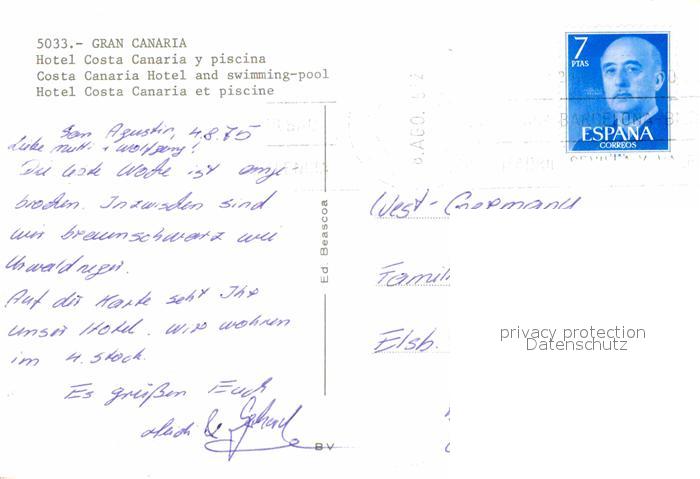 5033.- GRAN CANARIA
Hotel Costa Canaria y piscina
Costa Canaria Hotel and swimming-pool
Hotel Costa Canaria et piscine
7
PTAS
ESPAÑA
CORREOS
BARCELONA
AGO.
San Agustin, 4.8.75
Liebe Mutti + Wolfgang!
Die letzte Woche ist ange
brochen. Inzwischen sind
wir braunschwarz wie
Urwaldneger.
Auf der Karte seht Ihr
unser Hotel. Wir wohnen
im 4. Stock.
Es grüßen Euch
&
Ed. Beascoa
BV
West-Germany
Famili
Elsb.
privacy protection
Datenschutz